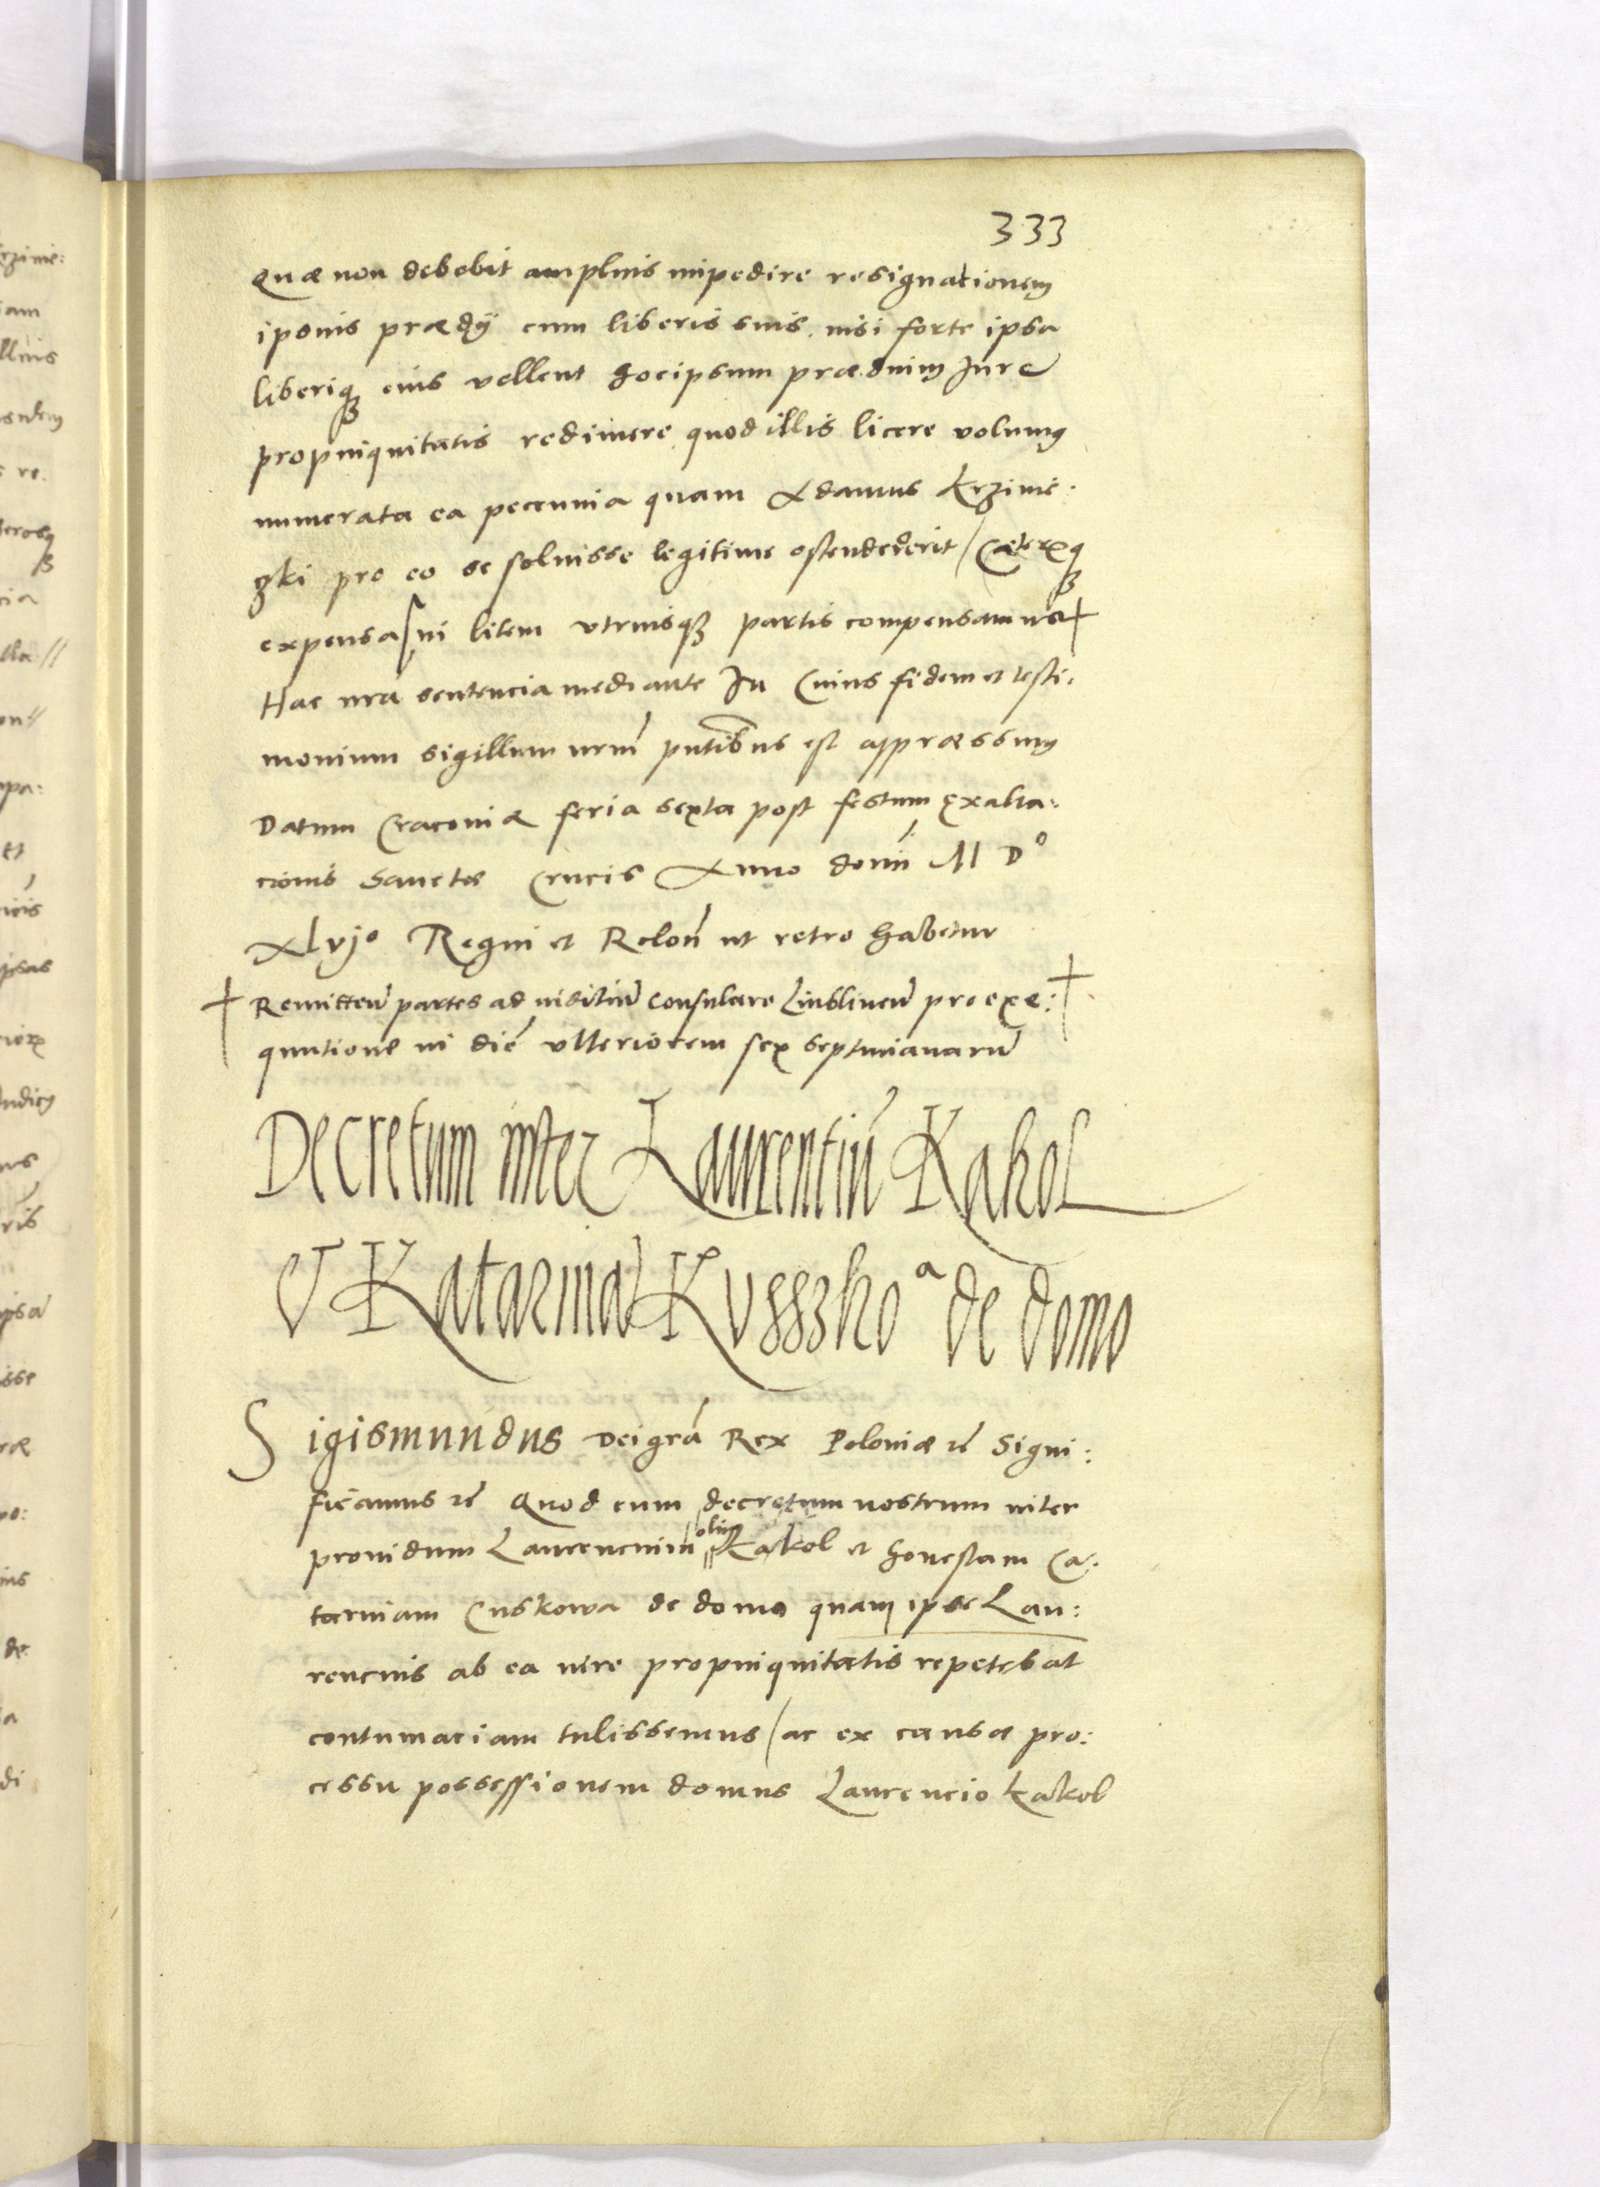 333
Quæ non debebit amplius impedire resignationem
ipsius prædij cum liberis suis, nisi forte ipsa
liberiq₃ eius vellent hocipsum prædium Jure
propinquitatis redimere, quod illis licere volumus
numerata ea pecunnia quam Adamus Krzime.
zki pro eo se soluisse legitime ostendererit / Cæterosq₃
expensas in litem vtriusq₃ partis compensamus +
Hac nra sentencia mediante In Cuius fidem et testi:
monium sigillum nrm̄ pntibus est appræssum
Datum Cracouiæ feria sexta post festum Exalta:
cionis Sanctæ Crucis Anno domī M D°
xlvj° Regni et Relon̄ ut retro habetur
+ Remitten̄ partes ad iuditiū consulare Lublinen̄ pro exe: +
quutione in diē vlteriorem sex septimanarū
Decretum inter Laurentiū Kakol
et Katarinā Kusszkoᵃ de domo
Sigismundus Dei gr̄a Rex Poloniæ ꝛc̄ Signi:
ficamus ꝛc̄ Quod cum decretum nostrum inter
prouidum Laurencium olim Kakol et honestam Ca:
tarinam Cuskowa de domo quam ipse Lau:
rencius ab ea iure propinquitatis repetebat
contumaciam tulissemus / ac ex causæ pro:
cessu possessionem domus Laurencio Kakol